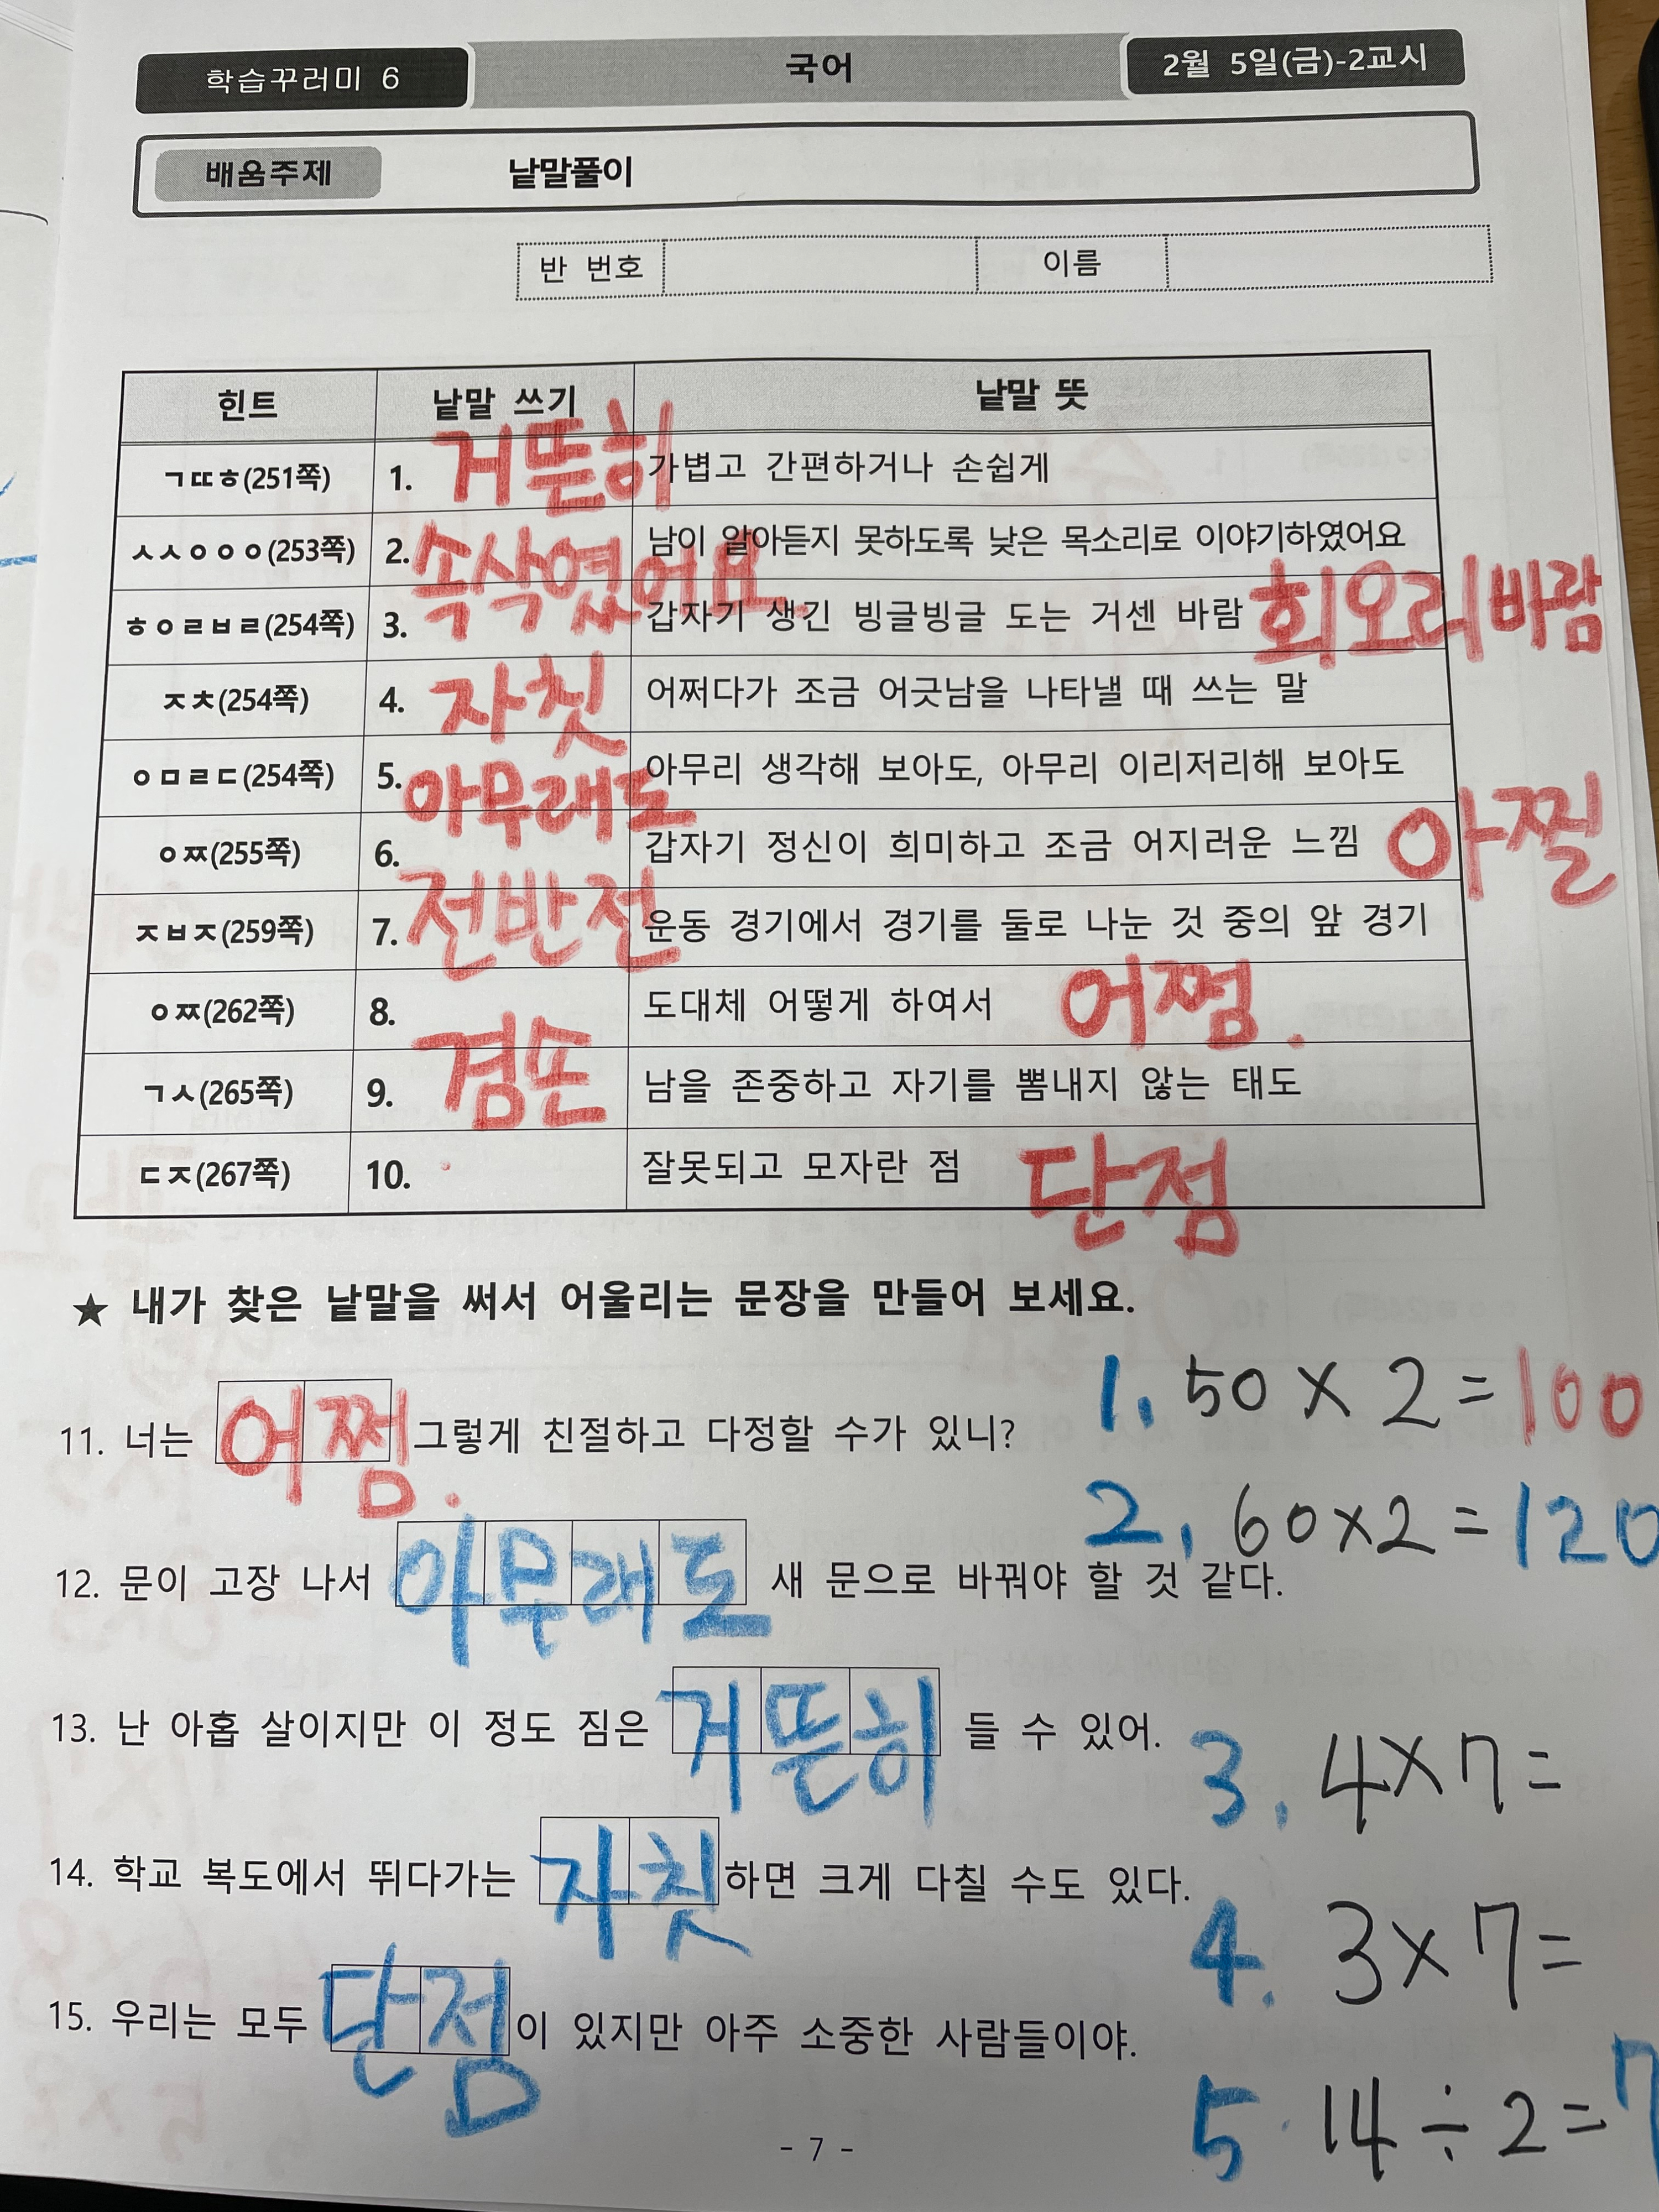 학습꾸러미 6 국어 2월 5일(금)-2교시
배움주제 낱말풀이
반 번호 이름
힌트 낱말 쓰기 낱말 뜻
ㄱㄸㅎ(251쪽) 1. 거뜬히 가볍고 간편하거나 손쉽게
ㅅㅅㅇㅇㅇ(253쪽) 2. 속삭였어요 남이 알아듣지 못하도록 낮은 목소리로 이야기하였어요
ㅎㅇㄹㅂㄹ(254쪽) 3. 갑자기 생긴 빙글빙글 도는 거센 바람 회오리바람
ㅈㅊ(254쪽) 4. 자칫 어쩌다가 조금 어긋남을 나타낼 때 쓰는 말
ㅇㅁㄹㄷ(254쪽) 5. 아무래도 아무리 생각해 보아도, 아무리 이리저리해 보아도
ㅇㅉ(255쪽) 6. 갑자기 정신이 희미하고 조금 어지러운 느낌 아찔
ㅈㅂㅈ(259쪽) 7. 전반전 운동 경기에서 경기를 둘로 나눈 것 중의 앞 경기
ㅇㅉ(262쪽) 8. 도대체 어떻게 하여서 어쩜.
ㄱㅅ(265쪽) 9. 겸손 남을 존중하고 자기를 뽐내지 않는 태도
ㄷㅈ(267쪽) 10. 잘못되고 모자란 점 단점
★ 내가 찾은 낱말을 써서 어울리는 문장을 만들어 보세요.
1. 50 × 2 = 100
11. 너는 어쩜. 그렇게 친절하고 다정할 수가 있니?
2. 60×2 = 120
12. 문이 고장 나서 아무래도 새 문으로 바꿔야 할 것 같다.
13. 난 아홉 살이지만 이 정도 짐은 거뜬히 들 수 있어.
3. 4×7=
14. 학교 복도에서 뛰다가는 자칫 하면 크게 다칠 수도 있다.
4. 3×7=
15. 우리는 모두 단점 이 있지만 아주 소중한 사람들이야.
5. 14÷2=7
- 7 -